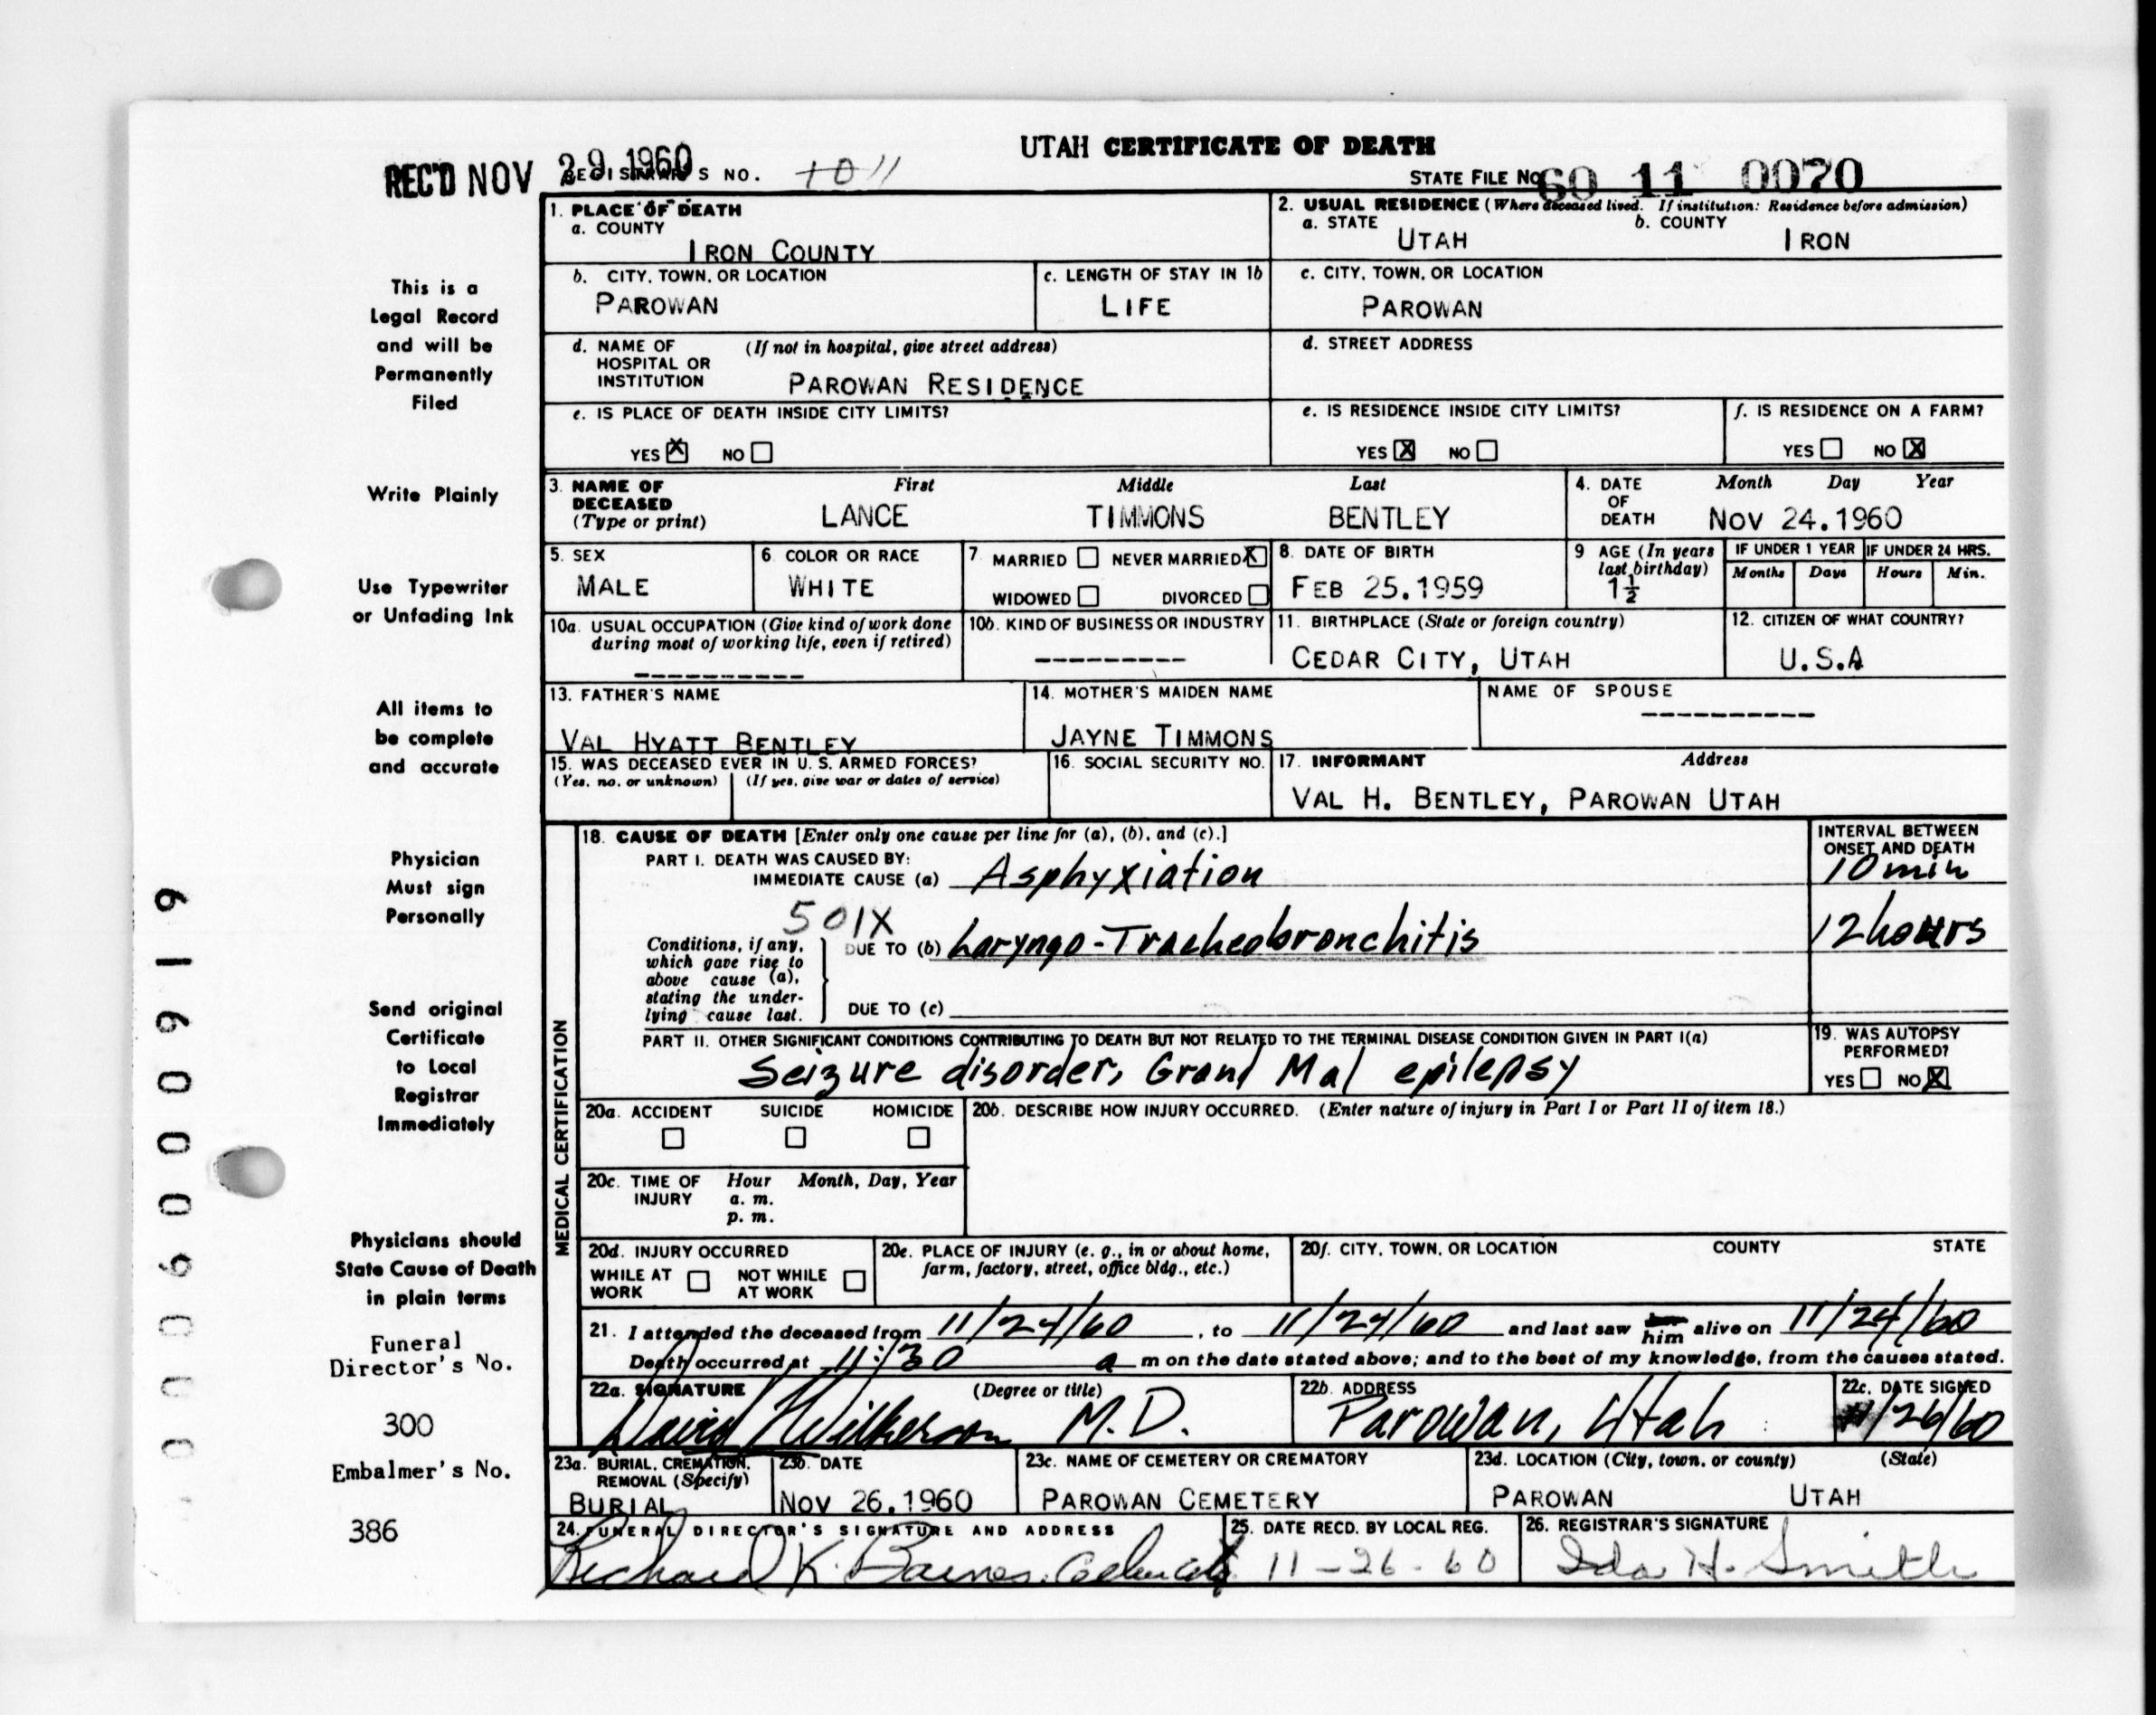 UTAH CERTIFICATE OF DEATH
REC'D NOV 29 1960
REGISTRAR'S NO. 1011
STATE FILE NO. 60 11 0070
1. PLACE OF DEATH
a. COUNTY
IRON COUNTY
2. USUAL RESIDENCE (Where deceased lived. If institution: Residence before admission)
a. STATE b. COUNTY
UTAH IRON
b. CITY, TOWN, OR LOCATION
PAROWAN
c. LENGTH OF STAY IN 1b
LIFE
c. CITY, TOWN, OR LOCATION
PAROWAN
d. NAME OF HOSPITAL OR INSTITUTION (If not in hospital, give street address)
PAROWAN RESIDENCE
d. STREET ADDRESS
e. IS PLACE OF DEATH INSIDE CITY LIMITS?
YES X NO
e. IS RESIDENCE INSIDE CITY LIMITS?
YES X NO
f. IS RESIDENCE ON A FARM?
YES NO X
3. NAME OF DECEASED (Type or print)
First Middle Last
LANCE TIMMONS BENTLEY
4. DATE OF DEATH
Month Day Year
NOV 24.1960
5. SEX
MALE
6. COLOR OR RACE
WHITE
7. MARRIED NEVER MARRIED X
WIDOWED DIVORCED
8. DATE OF BIRTH
FEB 25.1959
9 AGE (In years last birthday)
1½
IF UNDER 1 YEAR IF UNDER 24 HRS.
Months Days Hours Min.
10a. USUAL OCCUPATION (Give kind of work done during most of working life, even if retired)
----------
10b. KIND OF BUSINESS OR INDUSTRY
----------
11. BIRTHPLACE (State or foreign country)
CEDAR CITY, UTAH
12. CITIZEN OF WHAT COUNTRY?
U.S.A
13. FATHER'S NAME
VAL HYATT BENTLEY
14. MOTHER'S MAIDEN NAME
JAYNE TIMMONS
NAME OF SPOUSE
-----------
15. WAS DECEASED EVER IN U. S. ARMED FORCES?
(Yes, no, or unknown) (If yes, give war or dates of service)
16. SOCIAL SECURITY NO.
17. INFORMANT Address
VAL H. BENTLEY, PAROWAN UTAH
MEDICAL CERTIFICATION
18. CAUSE OF DEATH [Enter only one cause per line for (a), (b), and (c).]
INTERVAL BETWEEN ONSET AND DEATH
PART I. DEATH WAS CAUSED BY:
IMMEDIATE CAUSE (a) Asphyxiation 10 min
501X
Conditions, if any, which gave rise to above cause (a), stating the underlying cause last.
DUE TO (b) Laryngo-Tracheobronchitis 12 hours
DUE TO (c)
PART II. OTHER SIGNIFICANT CONDITIONS CONTRIBUTING TO DEATH BUT NOT RELATED TO THE TERMINAL DISEASE CONDITION GIVEN IN PART I(a)
Seizure disorder, Grand Mal epilepsy
19. WAS AUTOPSY PERFORMED?
YES NO X
20a. ACCIDENT SUICIDE HOMICIDE
20b. DESCRIBE HOW INJURY OCCURRED. (Enter nature of injury in Part I or Part II of item 18.)
20c. TIME OF INJURY Hour Month, Day, Year
a. m.
p. m.
20d. INJURY OCCURRED
WHILE AT WORK NOT WHILE AT WORK
20e. PLACE OF INJURY (e. g., in or about home, farm, factory, street, office bldg., etc.)
20f. CITY, TOWN, OR LOCATION COUNTY STATE
21. I attended the deceased from 11/24/60, to 11/24/60 and last saw her him alive on 11/24/60
Death occurred at 11:30 a m on the date stated above; and to the best of my knowledge, from the causes stated.
22a. SIGNATURE (Degree or title)
David Wilkerson M.D.
22b. ADDRESS
Parowan, Utah
22c. DATE SIGNED
11/26/60
23a. BURIAL, CREMATION, REMOVAL (Specify)
BURIAL
23b. DATE
NOV 26.1960
23c. NAME OF CEMETERY OR CREMATORY
PAROWAN CEMETERY
23d. LOCATION (City, town, or county) (State)
PAROWAN UTAH
24. FUNERAL DIRECTOR'S SIGNATURE AND ADDRESS
Richard K. Barnes
25. DATE RECD. BY LOCAL REG.
11-26-60
26. REGISTRAR'S SIGNATURE
Ida H. Smith
This is a
Legal Record
and will be
Permanently
Filed
Write Plainly
Use Typewriter
or Unfading Ink
All items to
be complete
and accurate
Physician
Must sign
Personally
Send original
Certificate
to Local
Registrar
Immediately
Physicians should
State Cause of Death
in plain terms
Funeral
Director's No.
300
Embalmer's No.
386
0006000919